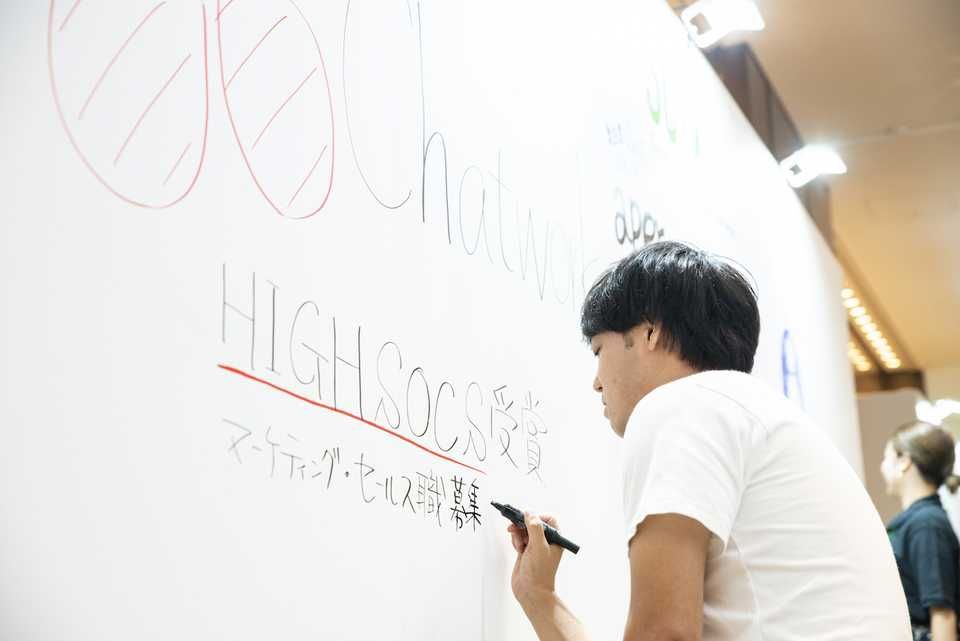 Chatwork
HIGHSOCS受賞
マーケティング・セールス職募集
app
A